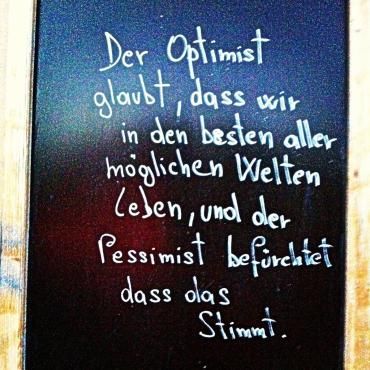 Der Optimist
glaubt, dass wir
in den besten aller
möglichen Welten
leben, und der
Pessimist befürchtet
dass das
Stimmt.